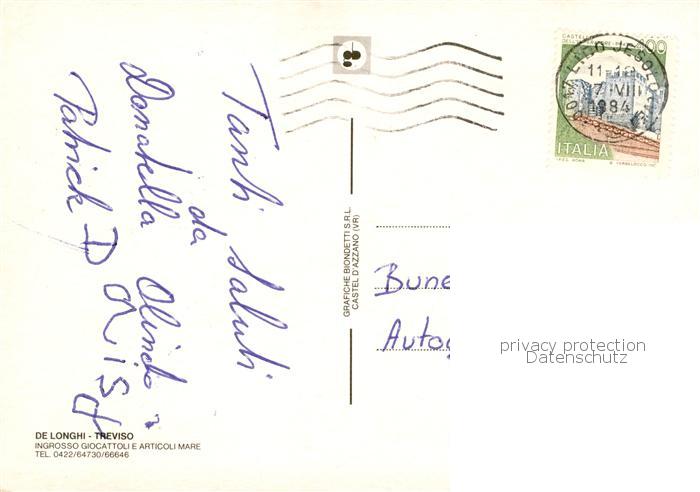 Tanti Saluti
da
Donatella Olindo
Patrick D
DE LONGHI - TREVISO
INGROSSO GIOCATTOLI E ARTICOLI MARE
TEL. 0422/64730/66646
GRAFICHE BIONDETTI S.R.L.
CASTEL D'AZZANO (VR)
400
LIDO JESOLO
VIII
1984
ITALIA
Bune
Autog
privacy protection
Datenschutz